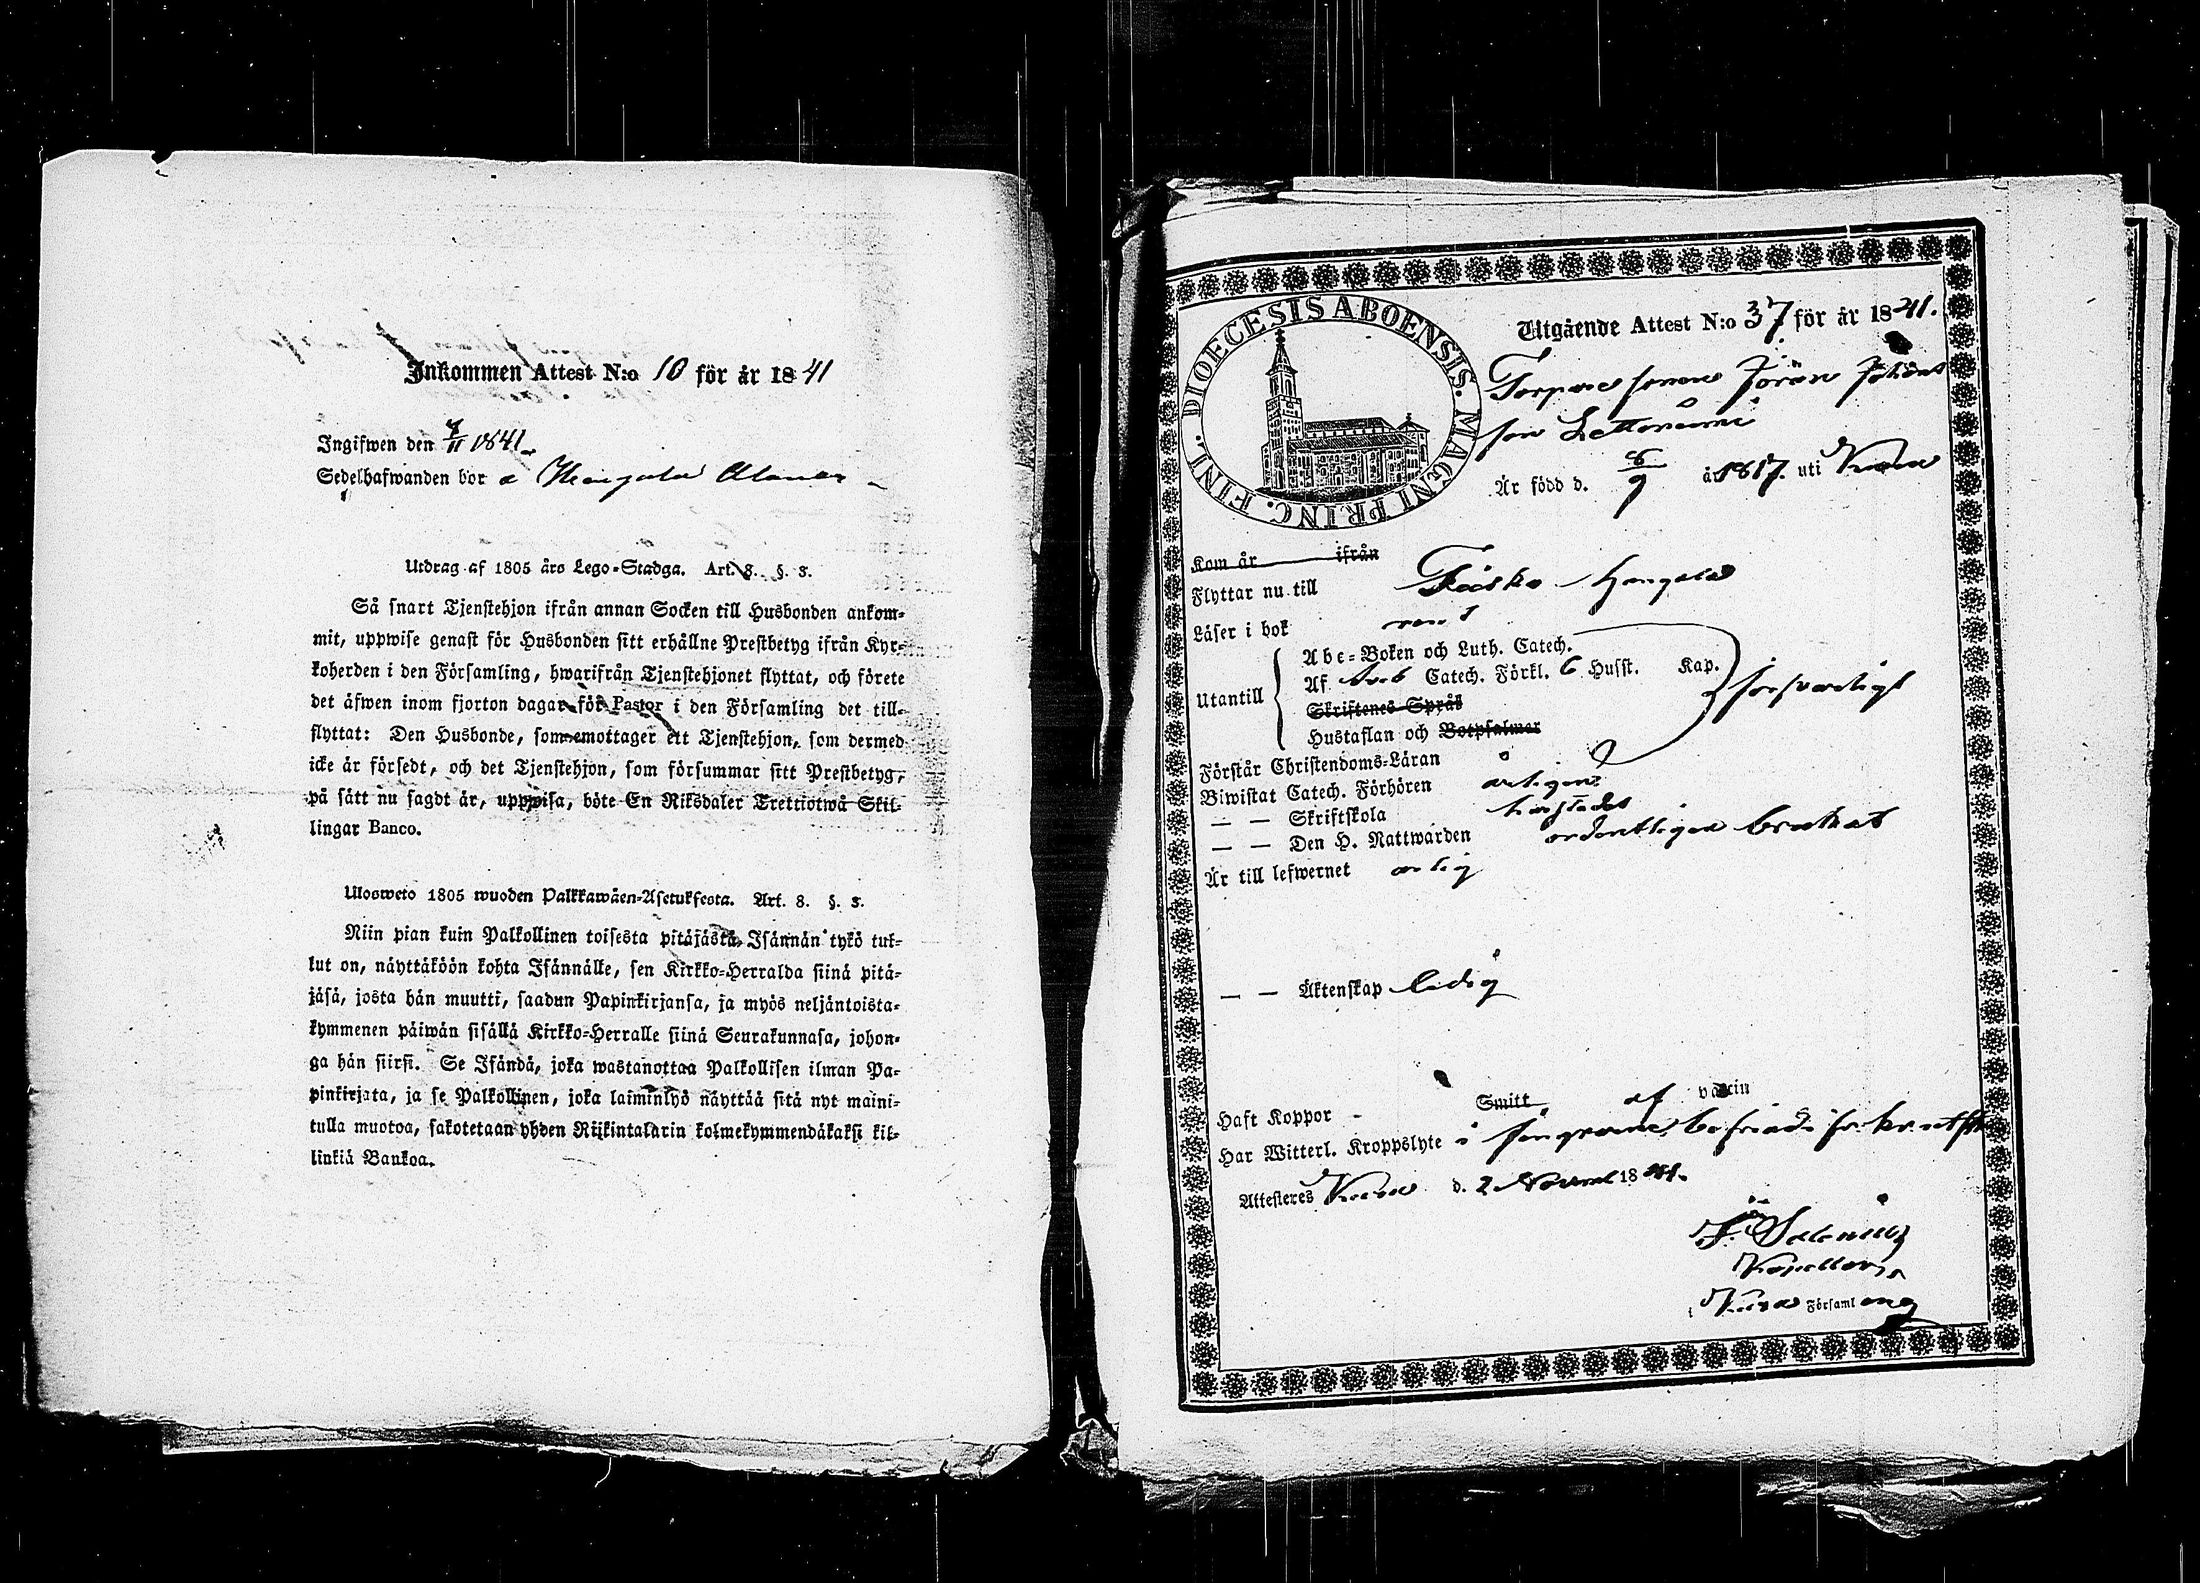 Inkommen Attest N:o 10 för år 1841
Ingifwen den 7/11 1841
Sedelhafwanden bor a
Utdrag af 1805 års Lego-Stadga. Art. 8. §. 3.
Så snart Tjenstehjon ifrån annan Socken till Husbonden ankom-
mit, uppwise genast för Husbonden sitt erhållne Prestbetyg ifrån Kyr-
koherden i den Församling, hwarifrån Tjenstehjonet flyttat, och förete
det äfwen inom fjorton dagar för Pastor i den Församling det till-
flyttat: Den Husbonde, som emottager ett Tjenstehjon, som dermed
icke är försedt, och det Tjenstehjon, som försummar sitt Prestbetyg,
på sätt nu sagdt är, uppwisa, böte En Riksdaler Trettiotwå Skil-
lingar Banco.
Ulosweto 1805 wuoden Palkkawäen-Asetuksesta. Art. 8. §. 3.
Niin pian kuin Palkollinen toisesta pitäjästä Isännän tykö tul-
lut on, näyttäköön kohta Isännälle, sen Kirkko-Herralda siinä pitä-
jäsä, josta hän muutti, saadun Papinkirjansa, ja myös neljäntoista-
kymmenen päiwän sisällä Kirkko-Herralle siinä Seurakunnasa, johon-
ga hän siirsi. Se Isändä, joka wastanottaa Palkollisen ilman Pa-
pinkirjata, ja se Palkollinen, joka laiminlyö näyttää sitä nyt maini-
tulla muotoa, sakotetaan yhden Riikintalarin kolmekymmendäkaksi kil-
linkiä Bankoa.
DIOECESIS ABOENSIS. MAGNI PRINC. FINL.
Utgående Attest N:o 37 för år 1841.
Torpare sonen Jöran Johans
son
Är född d. 6/9 år 1817. uti
Kom år ifrån
Flyttar nu till
Läser i bok rent
Utantill
Abc-Boken och Luth. Catech.
Af Sveb Catech. Förkl. 6 Husst. Kap.
Skriftenes Språk
Hustaflan och Botpsalmer
försvarligt
Förstår Christendoms-Läran
Biwistat Catech. Förhören årligen
— — Skriftskola
— — Den H. Nattwarden ordentligen brukat
Är till lefwernet ärlig
— — Äktenskap ledig
Haft Koppor - Smitt af vaccin
Har Witterl. Kroppslyte i
Attesteres d. 2 Novemb 1841.
Kapellan
i Församling